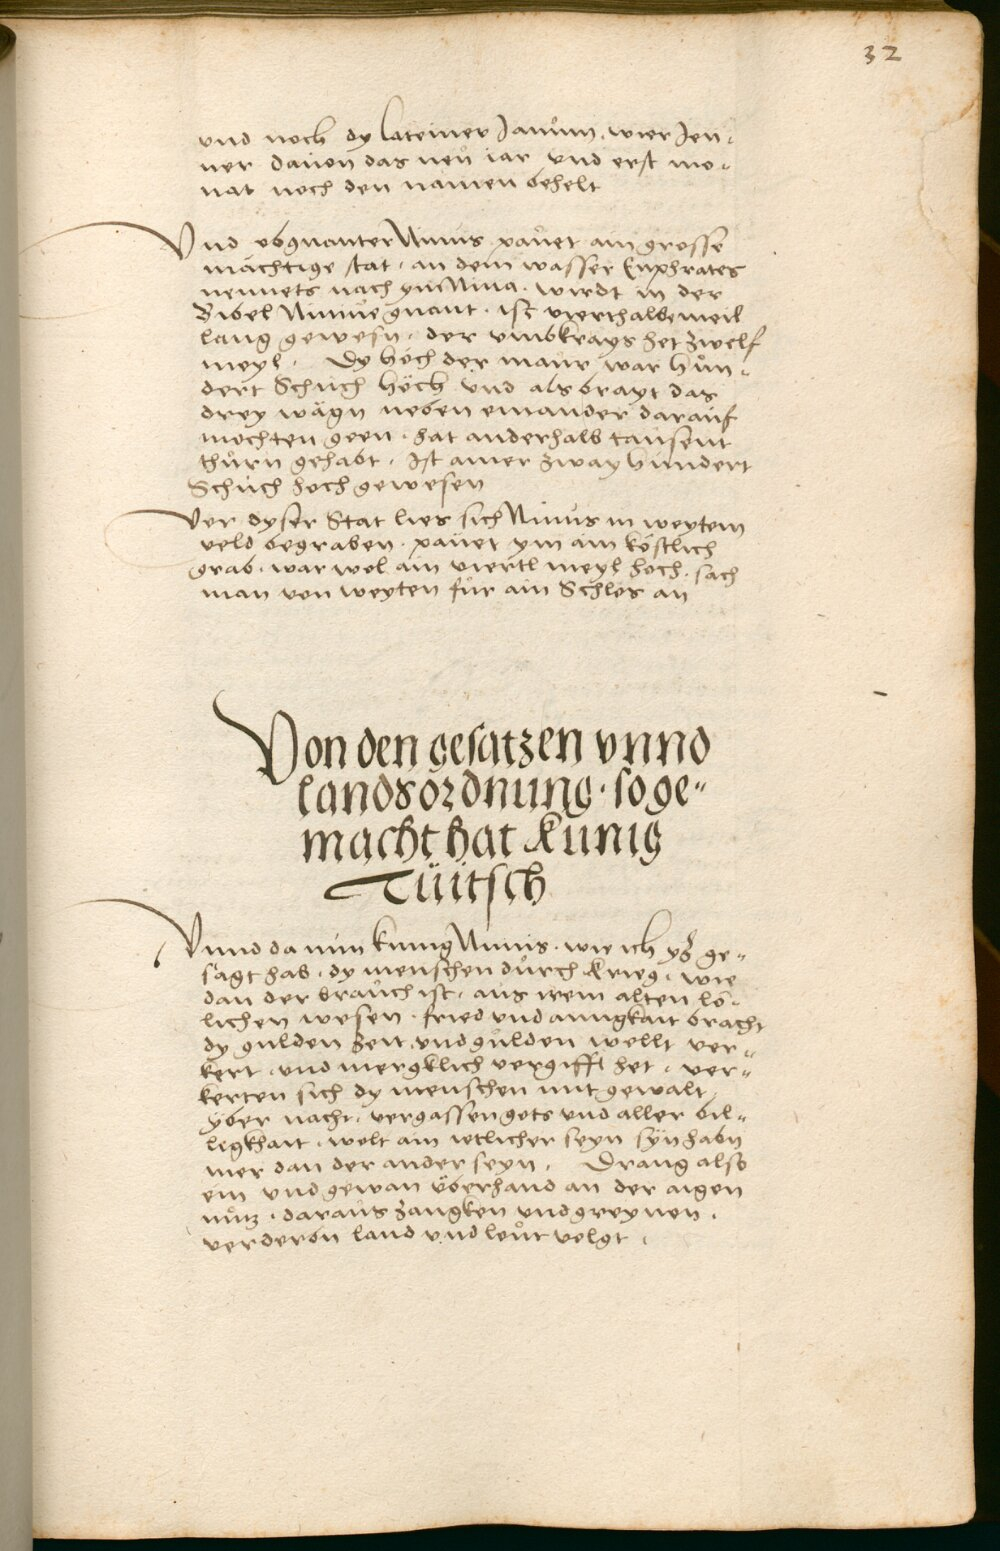 32
vnd noch dy lateiner Janŭm, wier Jen-
ner dauon das neŭ iar vnd erst mo-
nat noch den namen behelt
Vnd obgnanter Ninus paŭet ain grosse
mächtige stat, an dem wasser Euphrates
nennets nach ym Nina. wirdt in der
Bibel Niniue gnant. ist vierthalbe meil
lang gewesn, der vmbkrays het zwelf
meyl. Dy höch der maŭr war hŭn-
dert Schŭch höch vnd als brayt das
drey wägn neben einander daraŭf
mochten geen. hat anderhalb taŭsent
thŭrn gehabt, Ist ainer zway hŭndert
Schŭch hoch gewesen
Ver dyser Stat lies sich Ninŭs in weytem
veld begraben. paŭet ym ain köstlich
grab. war wol ain viertl meyl hoch. sach
man von weyten fŭr ain Schlos an
Von den gesatzen vnnd
landsordnung. so ge-
macht hat Kunig
Tüitsch
Vnnd da nŭn kŭnig Ninŭs. wie ich yʒ ge-
sagt hab. dy menschen dŭrch krieg. wie
dan der braŭch ist. aŭs irem alten lö-
lichen wesen. fried vnd ainigkait bracht
dy gŭlden zeit vnd gŭlden wellt ver-
kert. vnd mergklich vergifft het. ver-
kerten sich dy menschen mit gewalt
yber nacht. vergassen gots vnd aller bil-
ligkhait. welt ain ietlicher seyn sÿn habn
mer dan der ander seyn. Drang also
ein vnd gewan vberhand an der aigen
nŭtz. daraŭs zangken vnd greynen.
verderbn land vnd leŭt volgt.